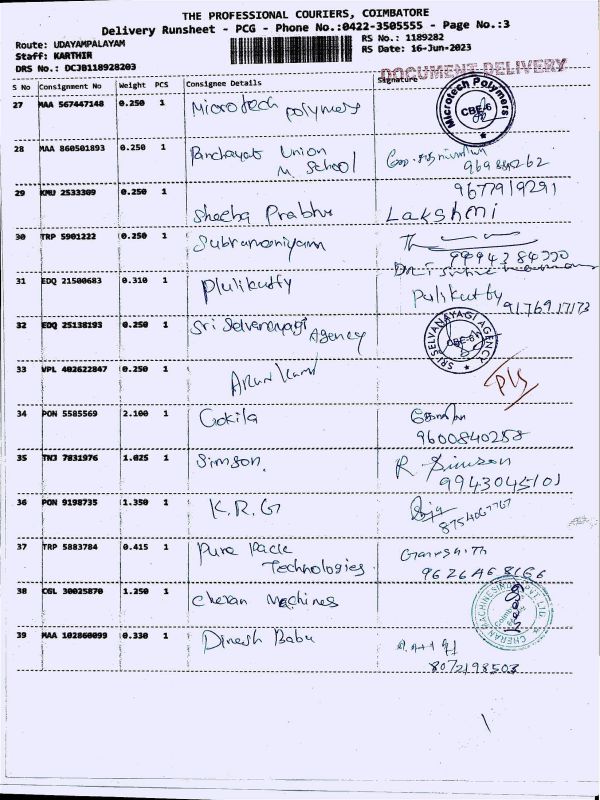 THE PROFESSIONAL COURIERS, COIMBATORE
Delivery Runsheet - PCG - Phone No.:0422-3505555 - Page No.:3
Route: UDAYAMPALAYAM
RS No.: 1189282
Staff: KARTHIR
RS Date: 16-Jun-2023
DRS No.: DCJB118928203
DOCUMENT DELIVERY
S No Consignment No Weight PCS Consignee Details Signature
27 MAA 567447148 0.250 1 Microtech polymers
Microtech Polymers CBE-6
28 MAA 860501893 0.250 1 Panchayat Union
M School
29 KMU 2533309 0.250 1 Sheeba Prabhu Lakshmi
9677919291
30 TRP 5901222 0.250 1 Subramaniyam
31 EDQ 21500683 0.310 1 Plulikutty Pulikutty
91.769.17173
32 EDQ 25138193 0.250 1 Sri Selvanayagi Agency
SRI SELVANAYAGI AGENCY CBE-6
33 VPL 402622847 0.250 1 Arun Kumar
34 PON 5585569 2.100 1 Gokila கோகிலா
9600840258
35 TNJ 7831976 1.025 1 Simson. R Simson
9943045101
36 PON 9198735 1.350 1 K.R.G
8754067767
37 TRP 5883784 0.415 1 Pure Pack
Technologies
38 CGL 30025870 1.250 1 Cheran Machines
39 MAA 102860099 0.330 1 Dinesh Babu
8072198503